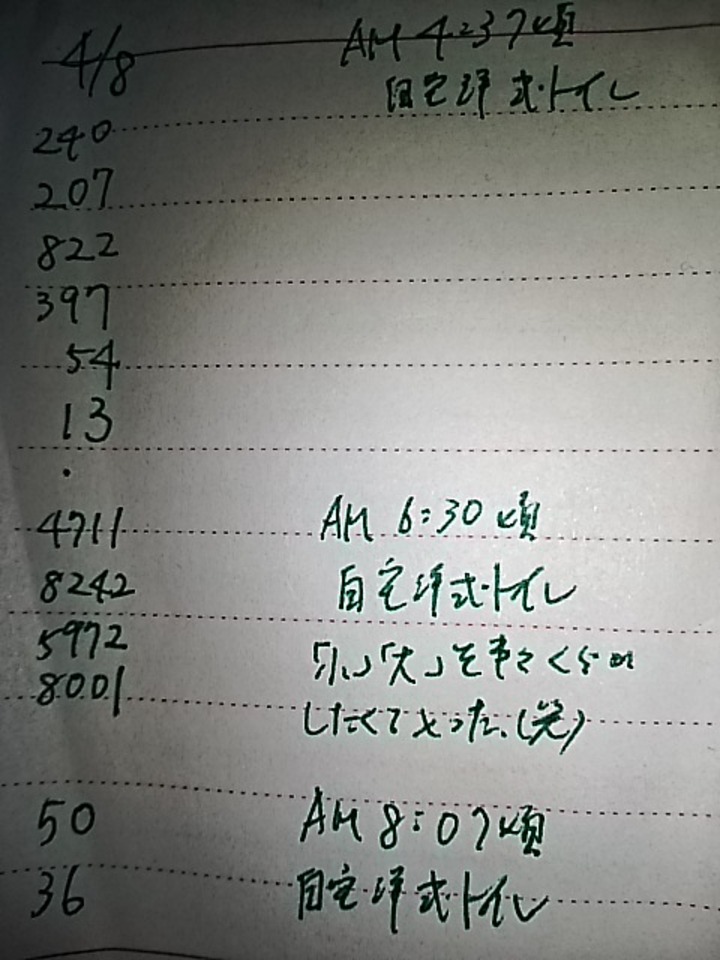 4/8 AM 4:37頃
自宅洋式トイレ
240
207
822
397
54
13
・
4711 AM 6:30頃
8242 自宅洋式トイレ
5972 「小」「大」を
8001 したくて (笑)
50 AM 8:07頃
36 自宅洋式トイレ